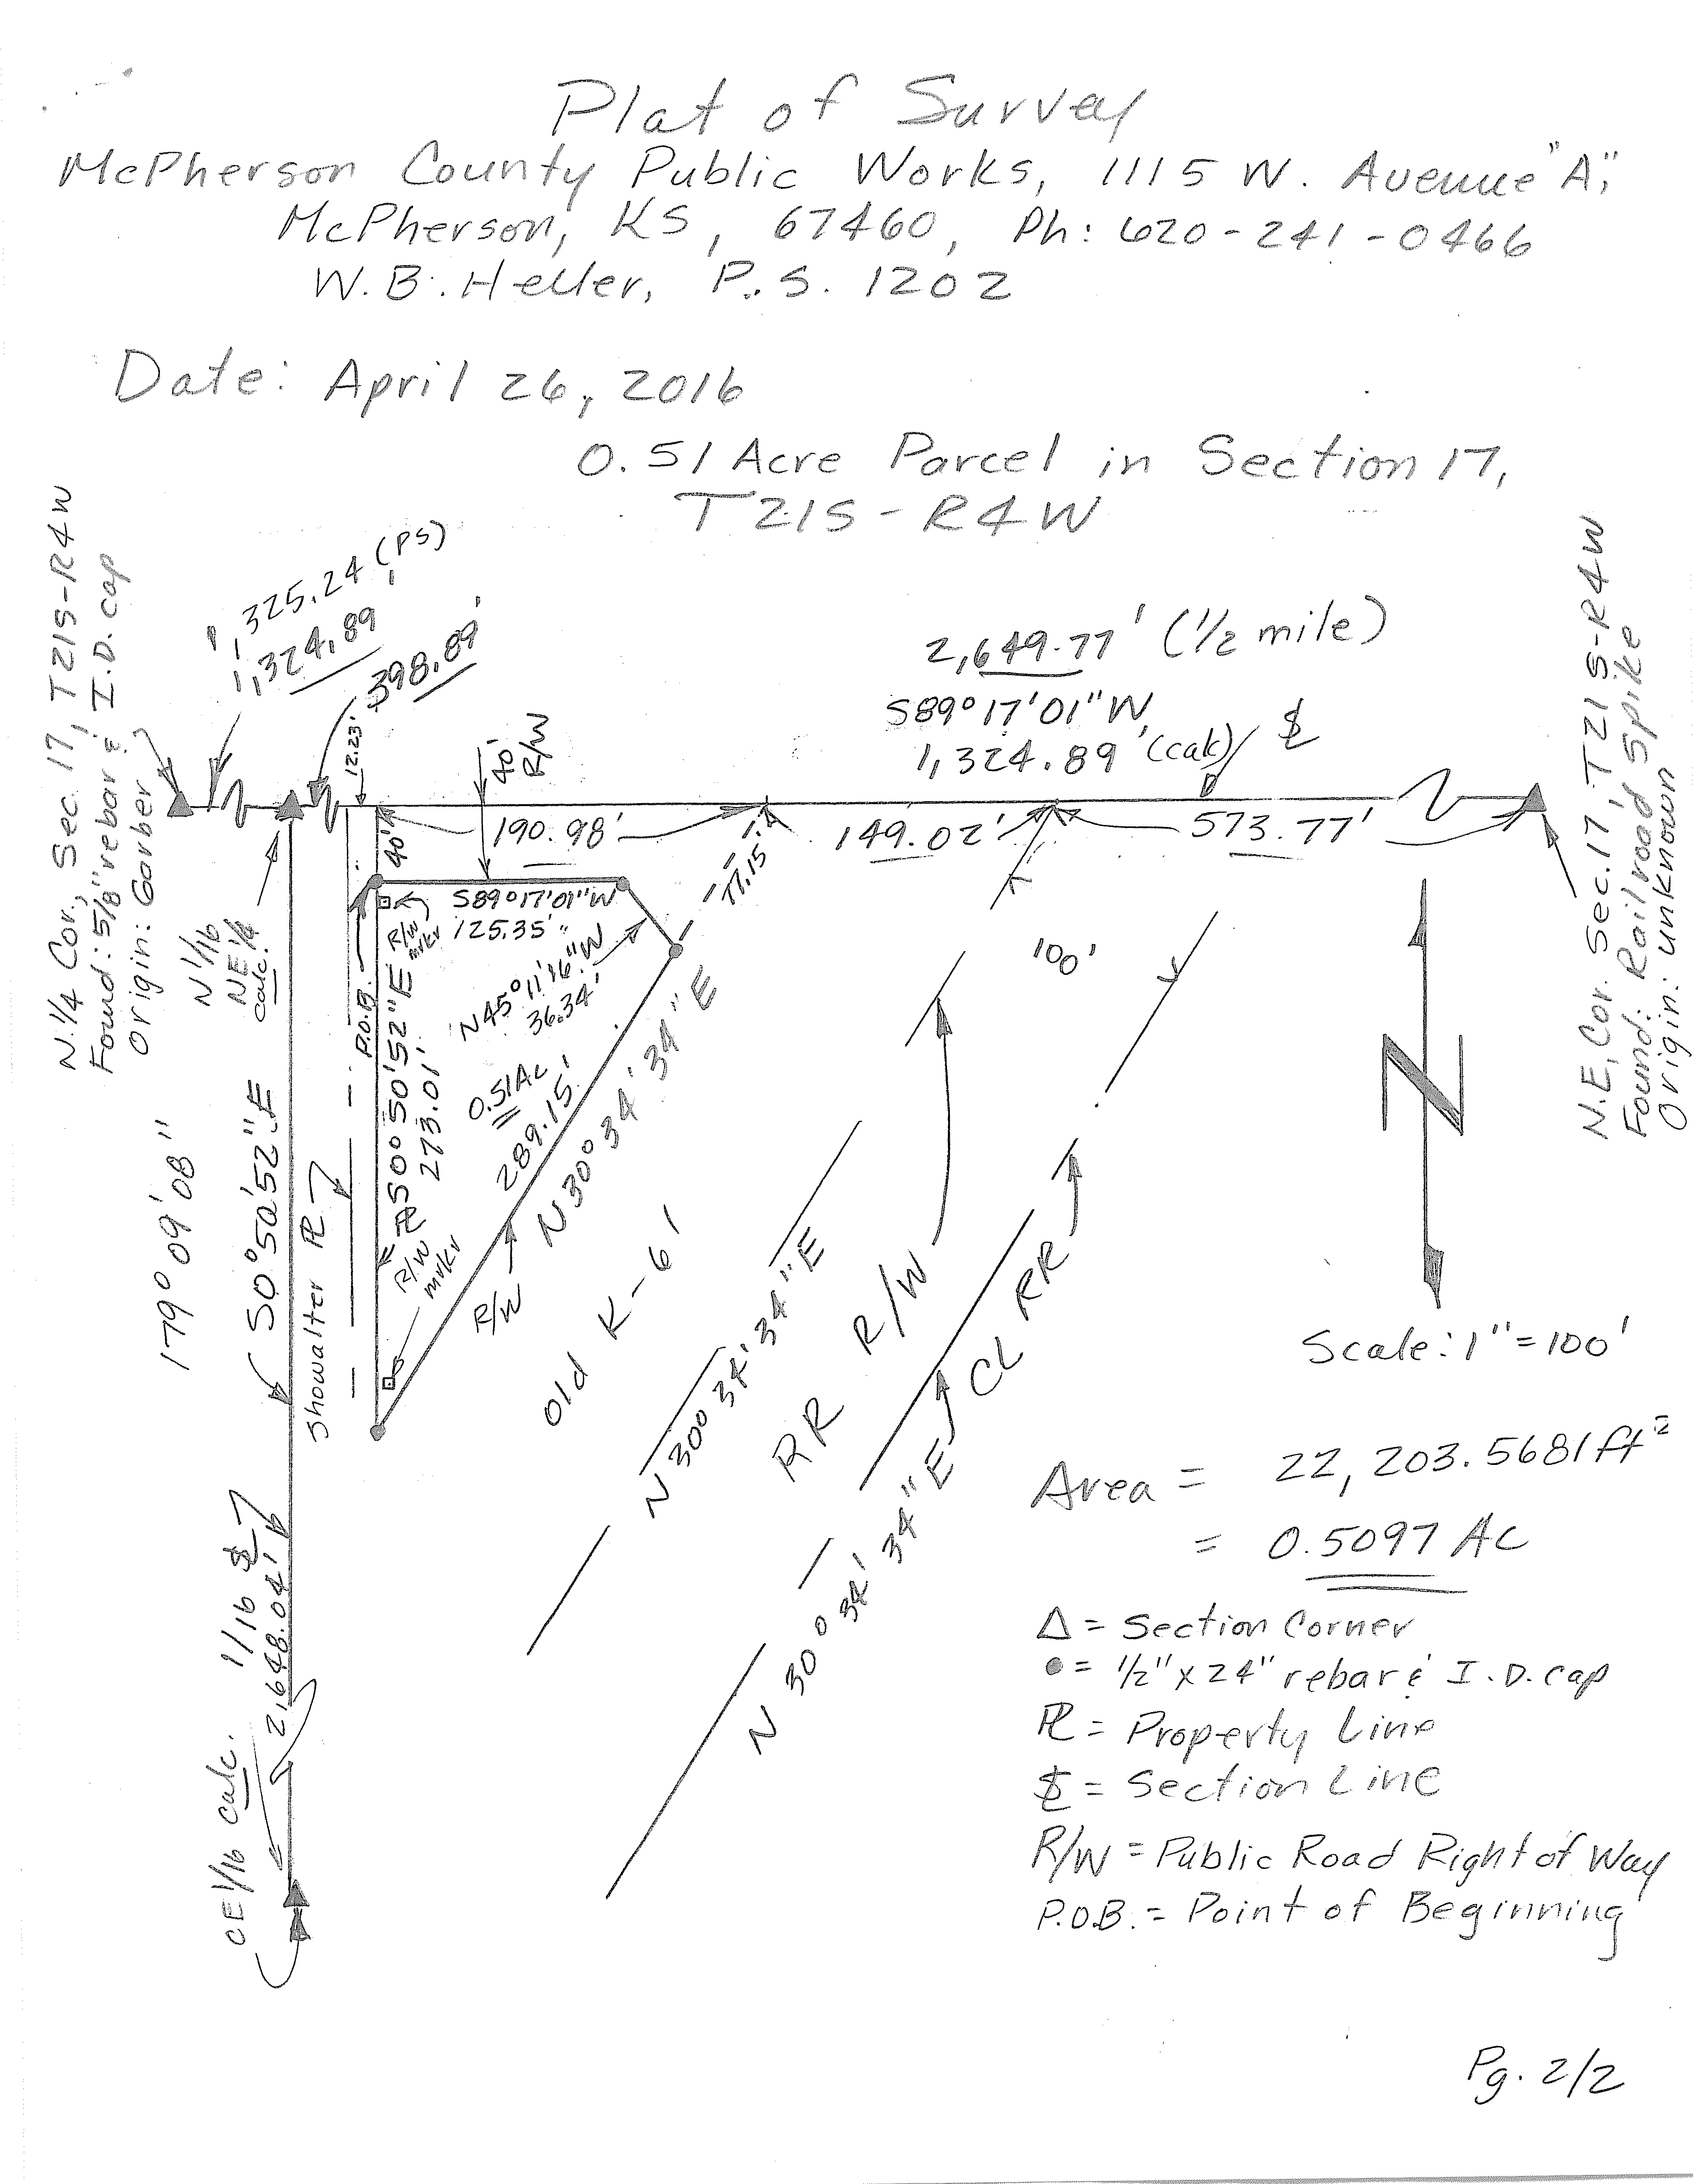 Plat of Survey
McPherson County Public Works, 1115 W. Avenue "A",
McPherson, KS, 67460, Ph: 620-241-0466
W.B. Heller, P.S. 1202
Date: April 26, 2016
0.51 Acre Parcel in Section 17,
T21S-R4W
N.1/4 Cor., Sec. 17, T21S-R4W
Found: 5/8" rebar & I.D. cap
Origin: Garber
1,325.24 (PS)
1,324.89
398.89'
12.23'
40'
R/W
2,649.77' (1/2 mile)
S89°17'01"W
1,324.89' (calc)
N.E. Cor. Sec. 17, T21S-R4W
Found: Railroad Spike
Origin: unknown
190.98'
149.02'
573.77'
40'
77.15'
N 1/16
NE 1/4
calc.
P.O.B.
R/W
mrkr
S89°17'01"W
125.35'
N45°11'16"W
36.34'
S0°50'52"E
273.01'
0.51Ac
289.15'
N30°34'34"E
100'
179°09'08"
S0°50'52"E
Showalter PL
PL
R/W
mrkr
R/W
Old K-61
N 30° 34' 34" E
RR R/W
CL RR
N 30° 34' 34" E
Scale: 1"=100'
Area = 22,203.5681 ft²
= 0.5097 AC
1/16
2,648.04'
CE 1/16 calc.
Δ = Section Corner
● = 1/2" x 24" rebar & I.D. cap
PL = Property Line
SL = Section Line
R/W = Public Road Right of Way
P.O.B. = Point of Beginning
Pg. 2/2